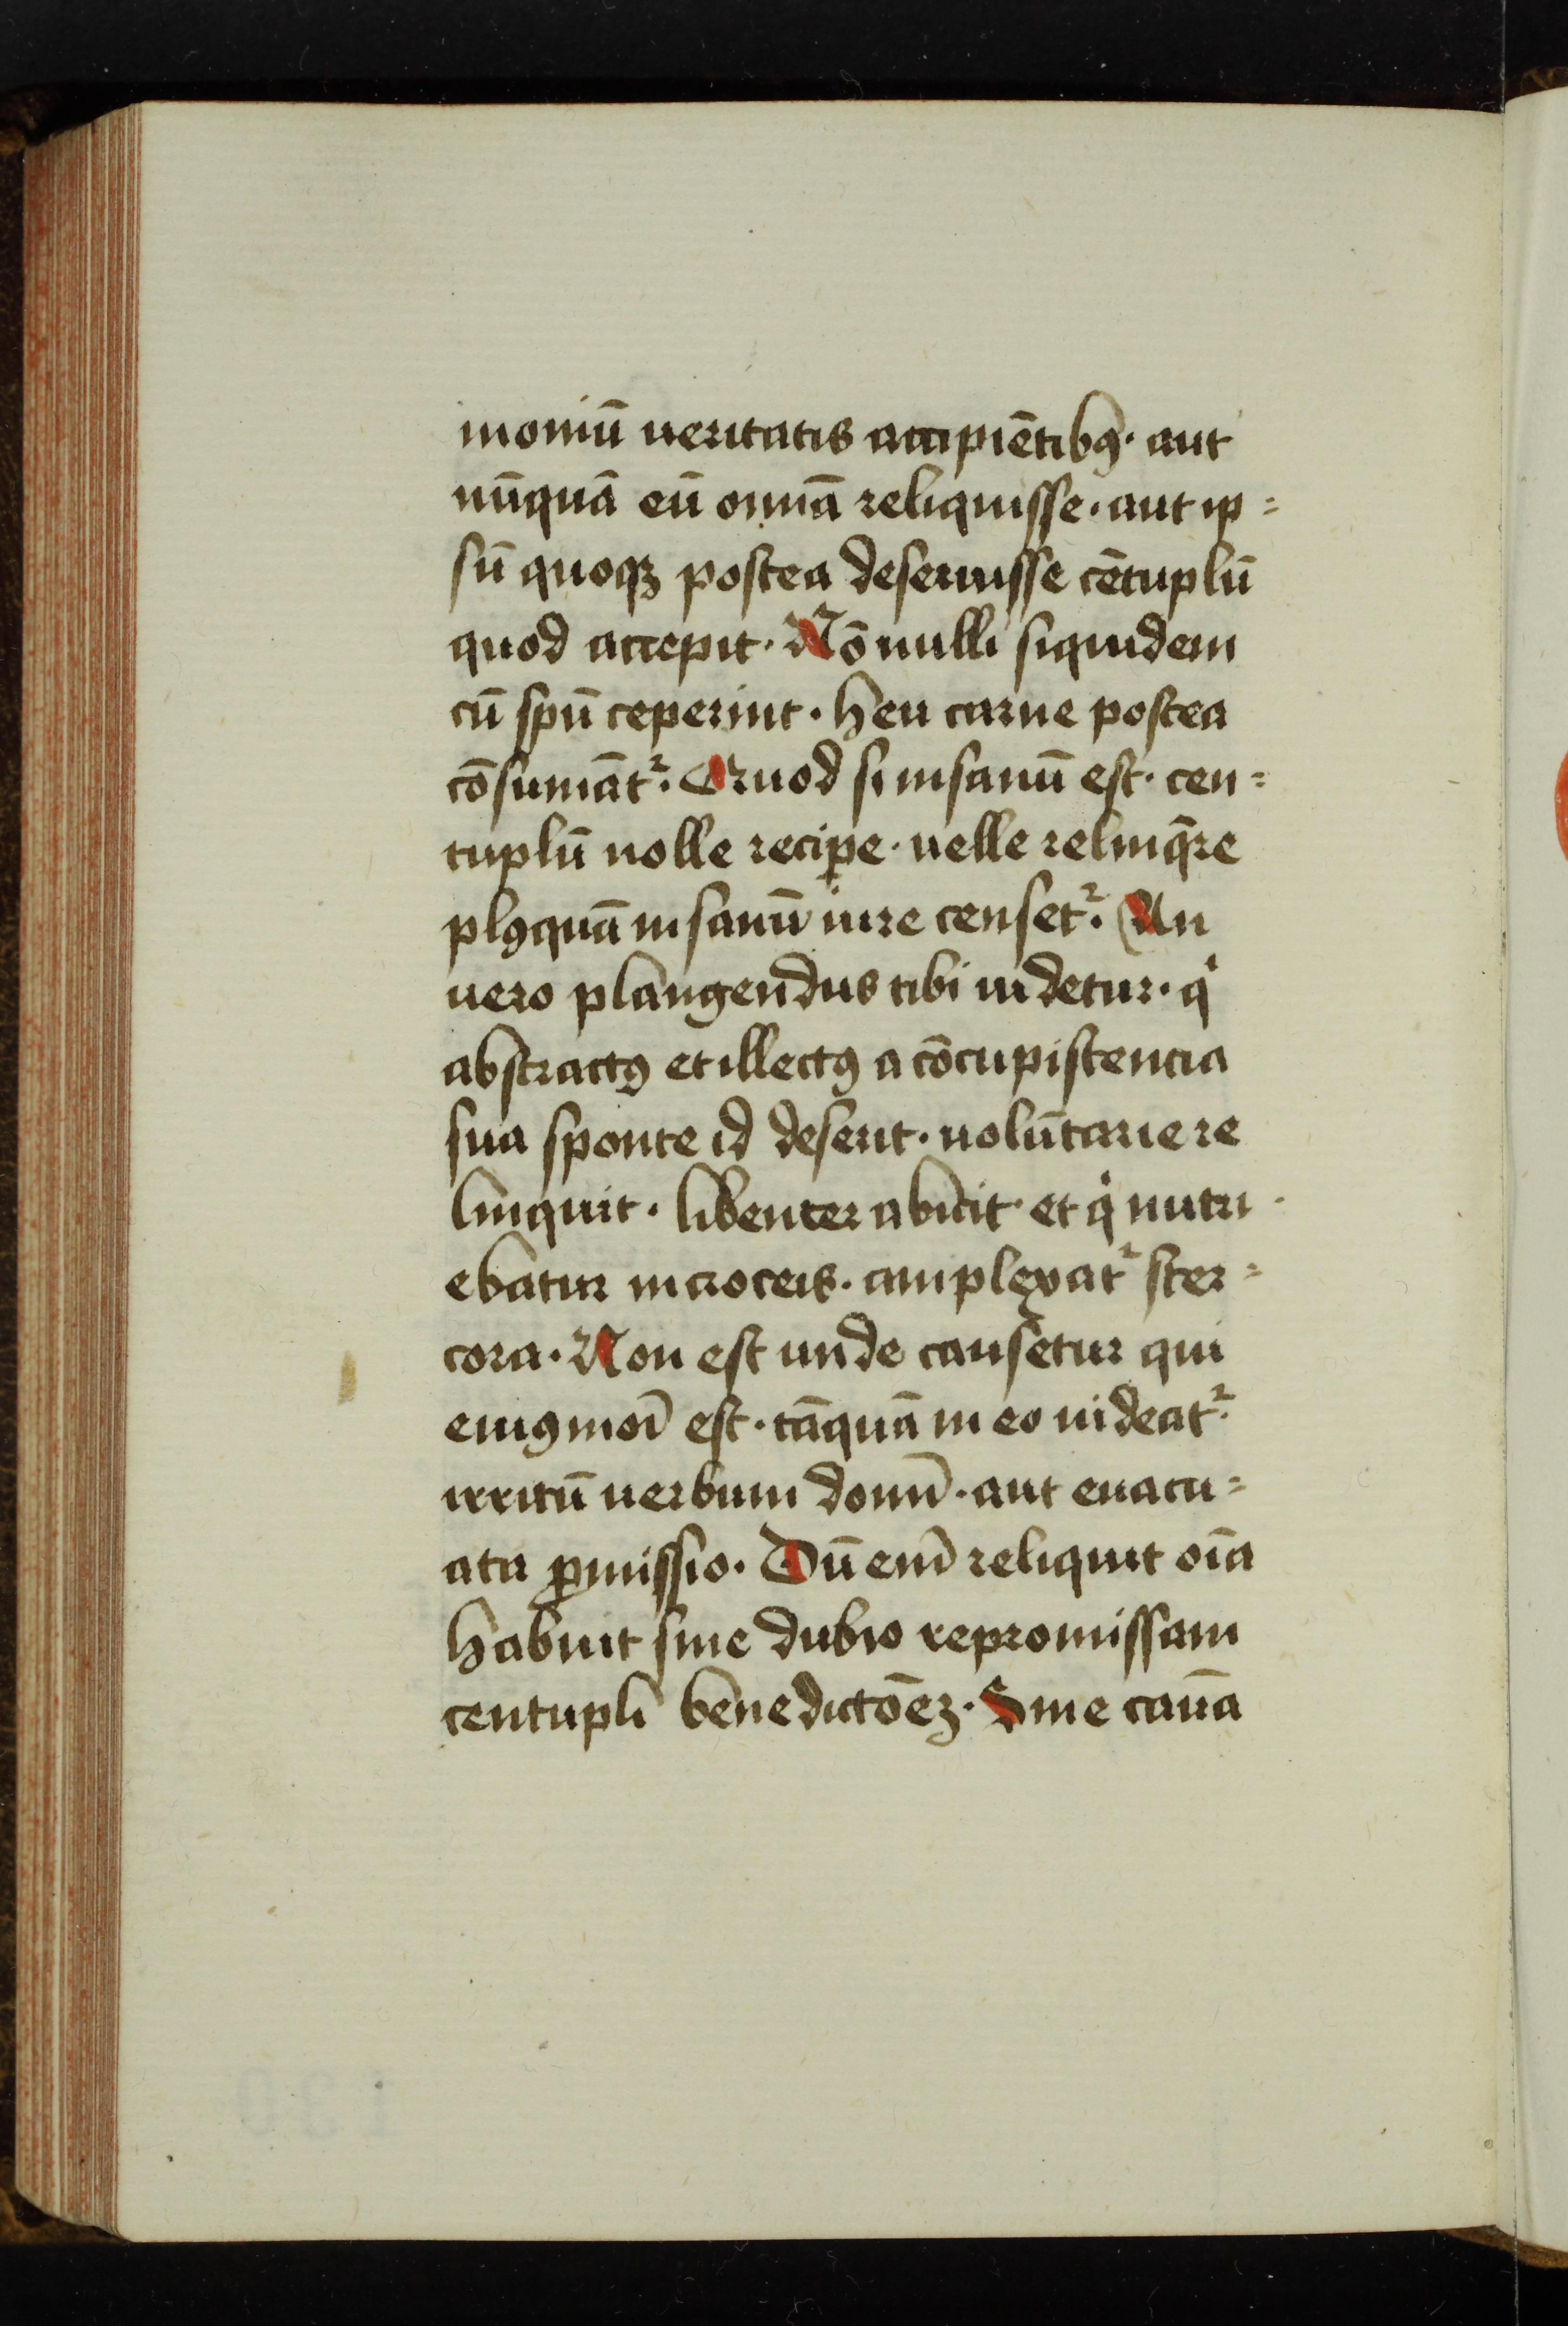 moniū ueritatis accipiētibꝯ · aut
nūquā eū omnia reliquisse · aut ip=
sū quoqꝫ postea deseruisse cētuplū
quod accepit · Nō nulli siquidem
cū spū ceperint · heu carne postea
cōsumāt᷑ · Quod si insanū est · cen=
tuplū nolle recip̱e · uelle relinq̄re
plꝯquā insanū iure censet᷑ · An
uero plangendus tibi uidetur · qͥ
abstractꝯ et illectꝯ a cōcupiscencia
sua sponte id deserit · uolūtarie re
linquit · libenter abicit · et qͥ nutri
ebatur in croceis · amplexat᷑ ster=
cora · Non est unde causetur qui
eiuꝯmoī est · tāquā in eo uideat᷑
irritū uerbum domī · aut euacu=
ata ꝓmissio · Dū enī reliquit oīa
habuit sine dubio repromissam
centupli benedictōeꝫ · Sine cauā